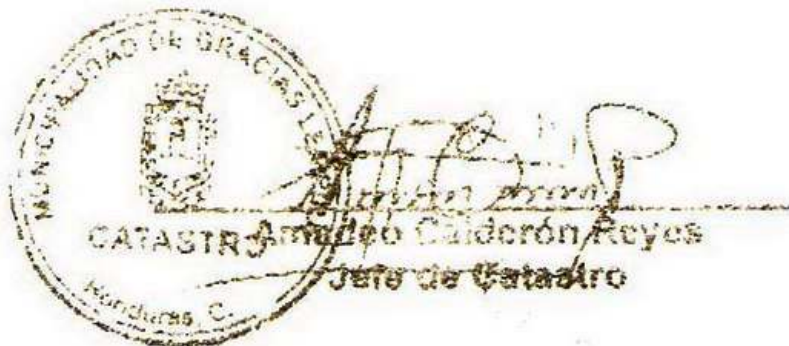 MUNICIPALIDAD DE GRACIAS LE
CATASTRO
Honduras, C.
Amadeo Calderón Reyes
Jefe de Catastro